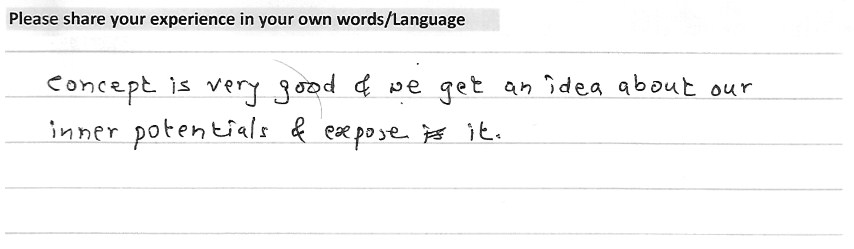 Please share your experience in your own words/Language
Concept is very good & we get an idea about our
inner potentials & expose it.